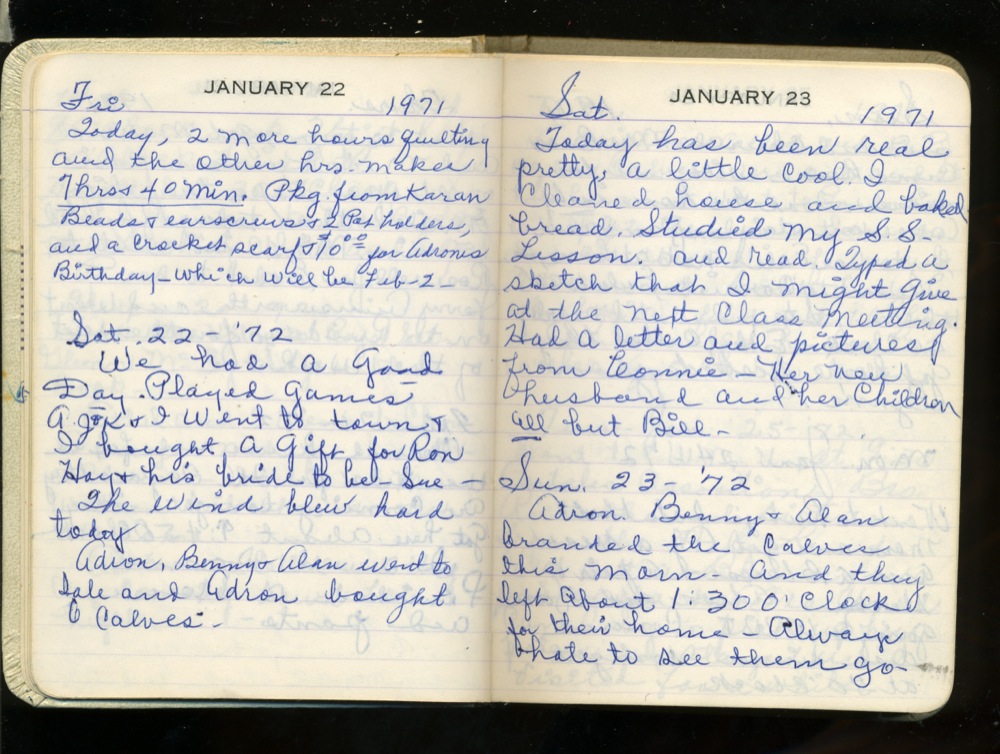 JANUARY 22
Fri 1971
Today, 2 more hours quilting
and the other hrs. makes
7hrs + 40 Min. Pkg. from Karan
Beads + earscrews + 2 Pot holders,
and a crocket scarf + 10.00 for Adron's
Birthday - which will be Feb-2-
Sat. 22 '72
We had a Good
Day. Played Games
+ I went to town +
I bought A Gift for Ron
Hoy + his bride to be - Sue -
The wind blew hard
today
Adron, Benny + Alan went to
Sale and Adron bought
6 Calves -
JANUARY 23
Sat. 1971
Today has been real
pretty, a little cool. I
Cleaned house and baked
bread. Studied my S.S-
Lesson. and read. Typed a
sketch that I might give
at the next Class Meeting.
Had a letter and pictures
from Connie - Her new
husband and her Children
all but Bill -
Sun. 23 - '72
Adron. Benny + Alan
branded the Calves
this morn - And they
left About 1:30 O'Clock
for their home - Always
hate to see them go -